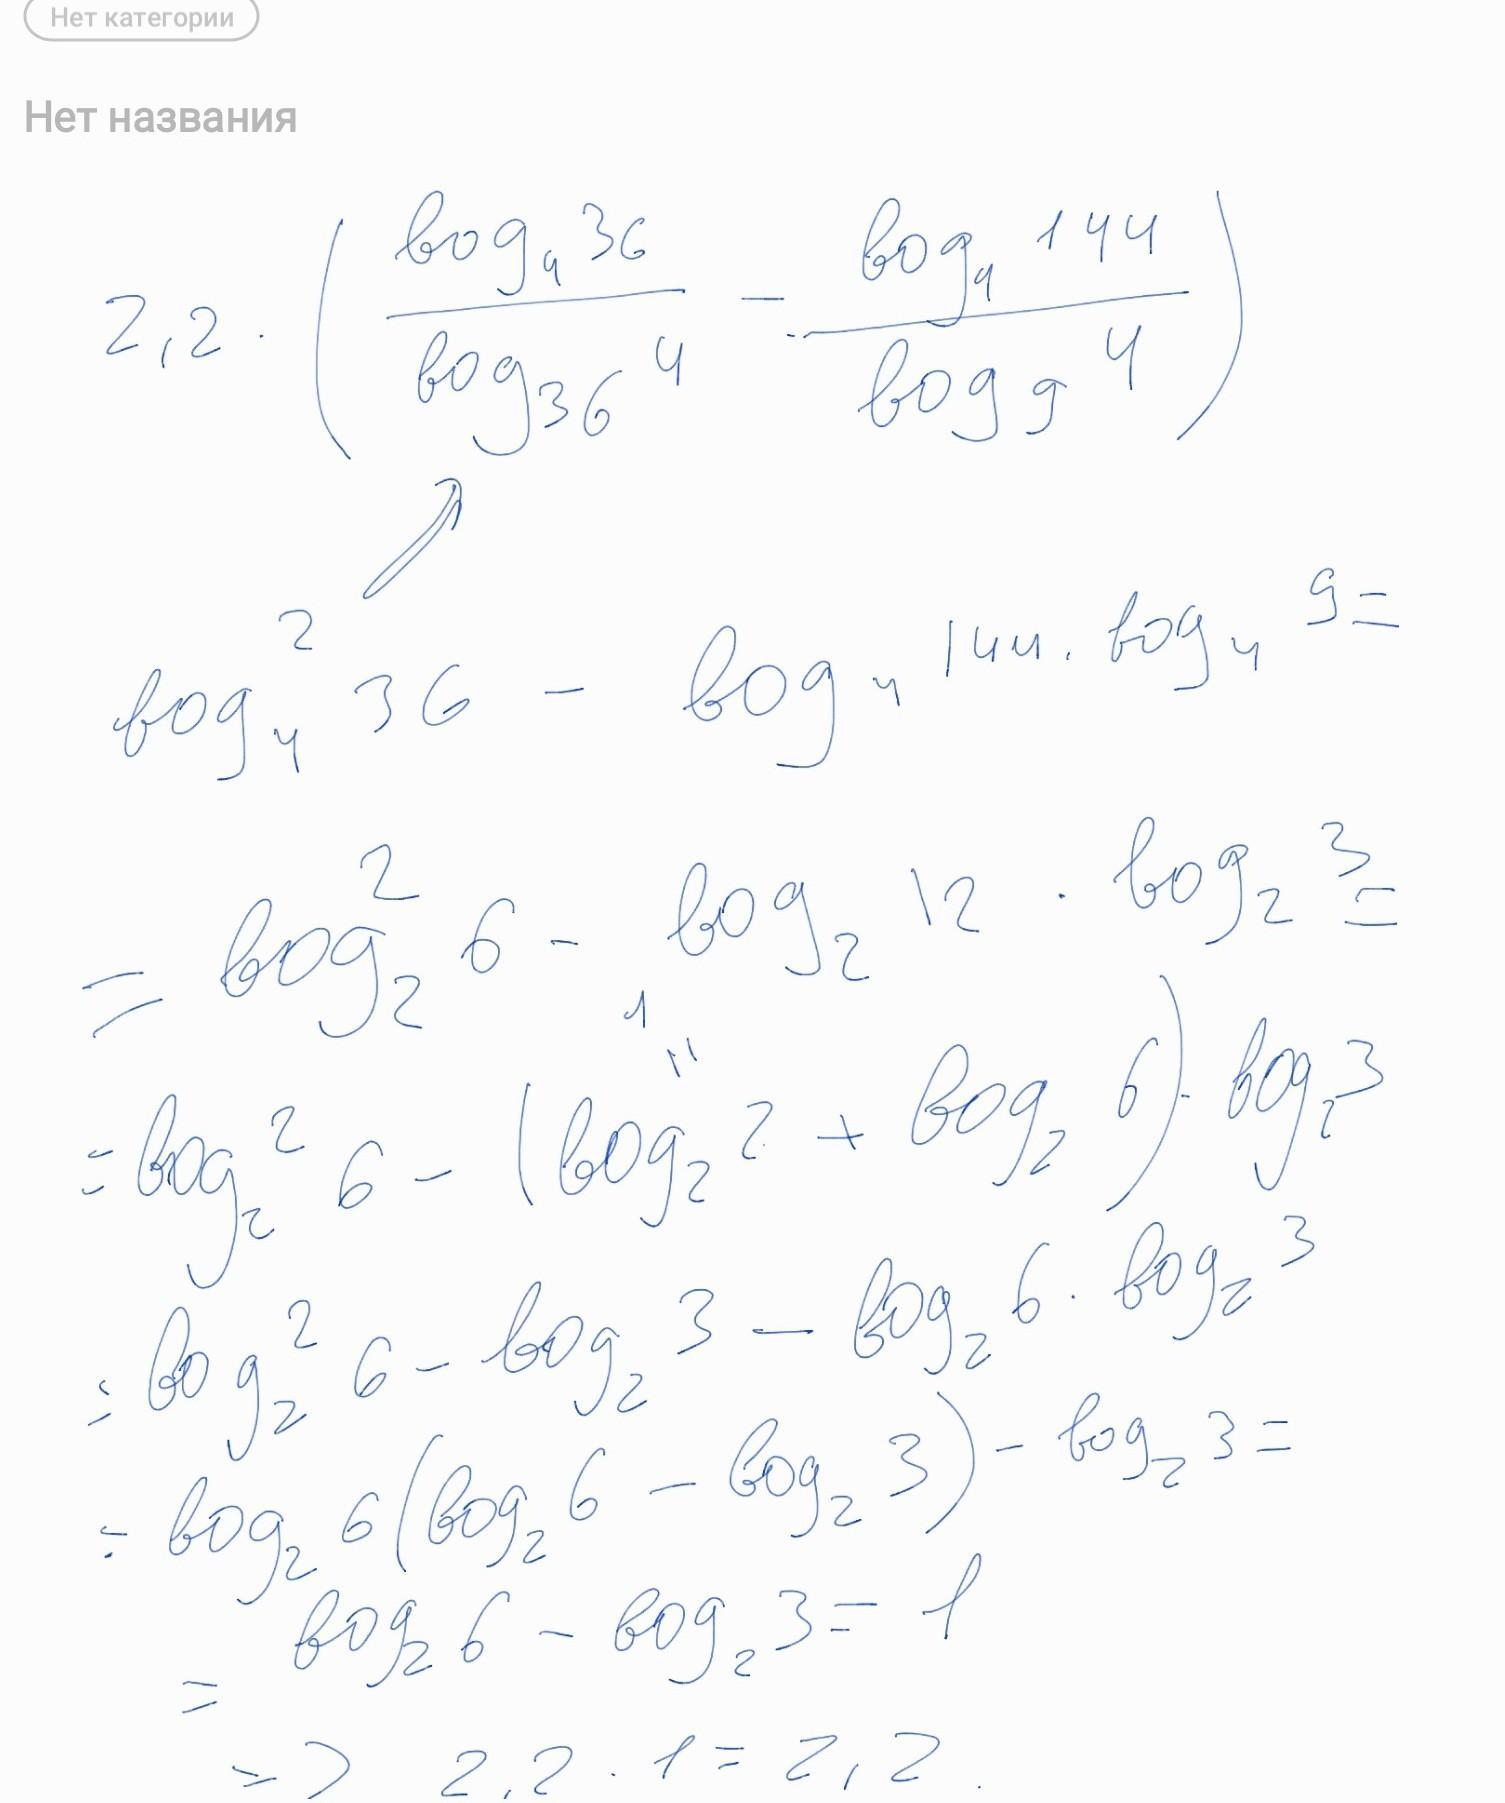 Нет категории
Нет названия
2,2 · ( log₄ 36 / log₃₆ 4 - log₄ 144 / log₉ 4 )
log₄² 36 - log₄ 144 · log₄ 9 =
= log₂² 6 - log₂ 12 · log₂ 3 =
1
"
= log₂² 6 - (log₂ 2 + log₂ 6) · log₂ 3
= log₂² 6 - log₂ 3 - log₂ 6 · log₂ 3
= log₂ 6 (log₂ 6 - log₂ 3) - log₂ 3 =
= log₂ 6 - log₂ 3 = 1
=> 2,2 · 1 = 2,2.